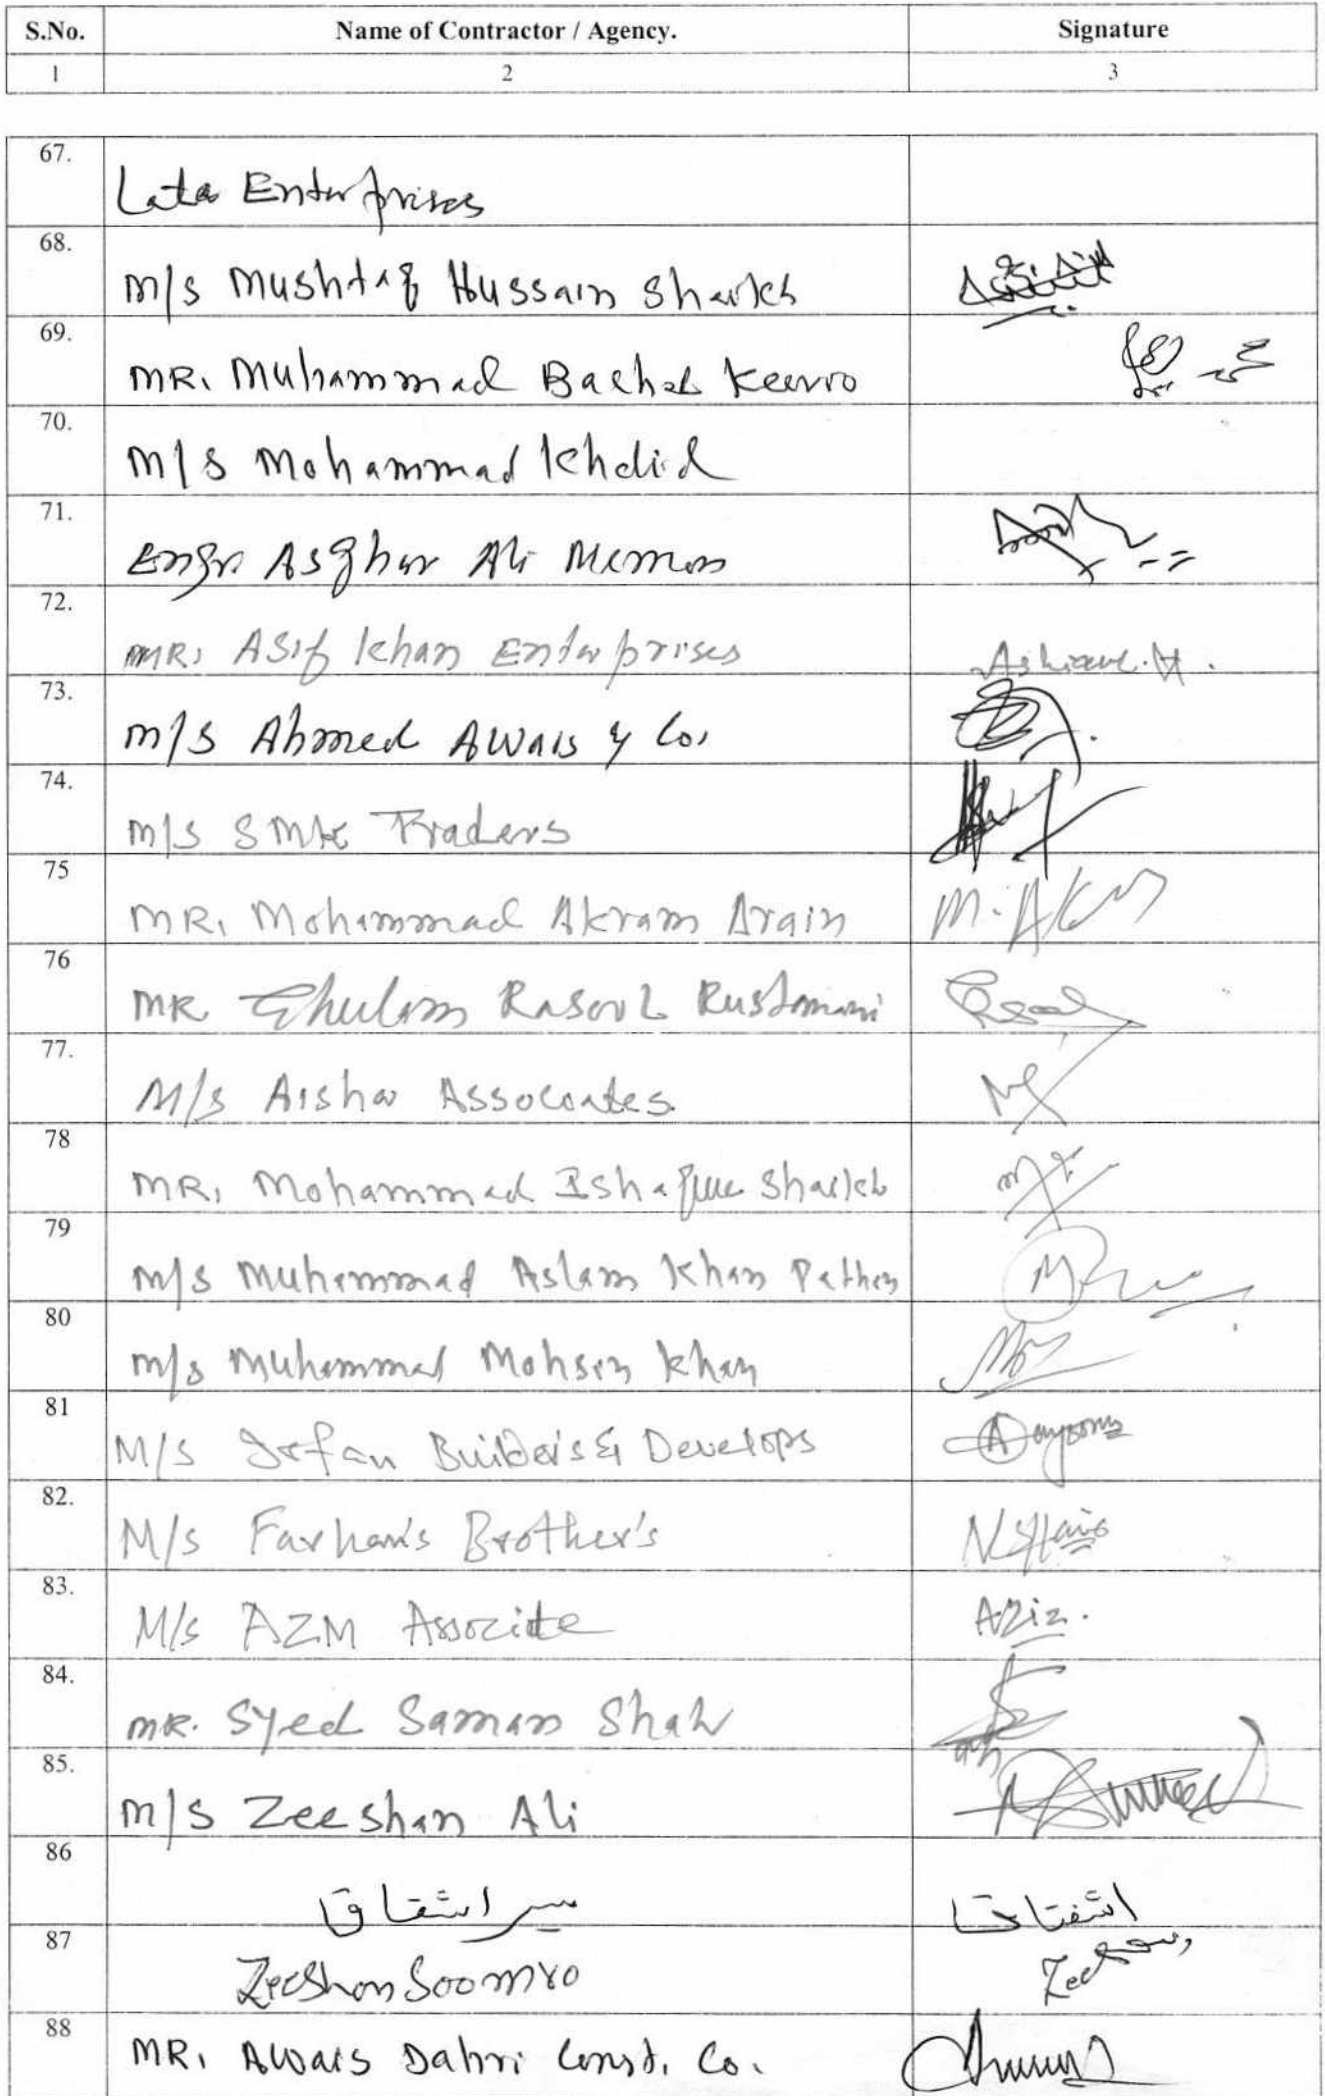 S.No. Name of Contractor / Agency. Signature
1 2 3
67. Lata Enterprises
68. M/S Mushtaq Hussain Shaikh
69. MR. Muhammad Bachal Keerio
70. M/S Mohammad Khalid
71. Engr Asghar Ali Memon
72. MR. Asif Khan Enterprises
73. M/S Ahmed Awais & Co.
74. M/S SMK Traders
75 MR. Mohammad Akram Arain M. Akram
76 MR. Ghulam Rasool Rustamani
77. M/S Aisha Assocoates.
78 MR. Mohammad Ishaque Shaikh
79 M/S Muhammad Aslam Khan Pathan
80 M/S Muhammad Mohsin Khan
81 M/S Irfan Builder's & Develops
82. M/S Farhan's Brother's
83. M/S AZM Associte Aziz.
84. MR. Syed Saman Shah
85. M/S Zeeshan Ali
86 سر اشفاق اشفاق
87 Zeeshan Soomro
88 MR. Awais Dahri Const. Co.